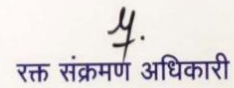 रक्त संक्रमण अधिकारी